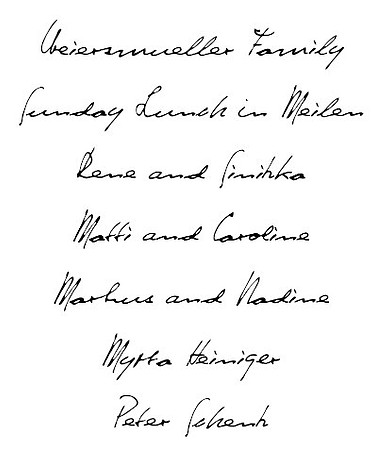 Weiersmueller Family
Sunday Lunch in Meilen
Rene and Sinikka
Matti and Caroline
Markus and Nadine
Myrta Heiniger
Peter Schenk